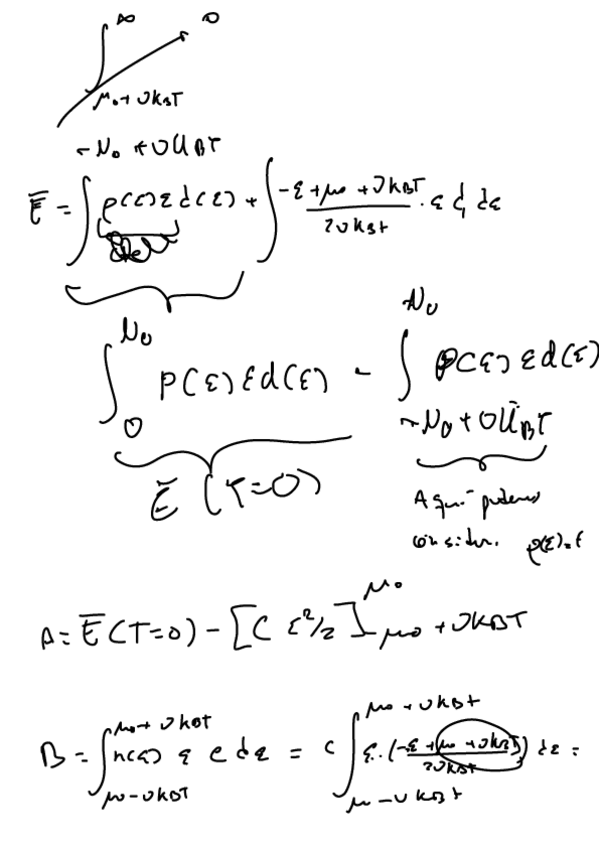 ∞ 0
μ₀+νk_BT
-μ₀+νk_BT
Ē = ∫ ρ(ε)ε d(ε) + ∫ (-ε+μ₀+νk_BT)/(2νk_Bt) · ε dε
∫₀^μ₀ ρ(ε)εd(ε) - ∫_{-μ₀+νk_BT}^{μ₀} ρ(ε)εd(ε)
Ē (T=0)
Aquí podemos
consider. ρ(ε)=
A = Ē(T=0) - [C ε²/2]_{-μ₀+νk_BT}^{μ₀}
B = ∫_{μ₀-νk_BT}^{μ₀+νk_BT} n(ε) ε c dε = c ∫_{μ₀-νk_Bt}^{μ₀+νk_Bt} ε·((-ε+μ₀+νk_BT)/(2νk_BT)) dε =